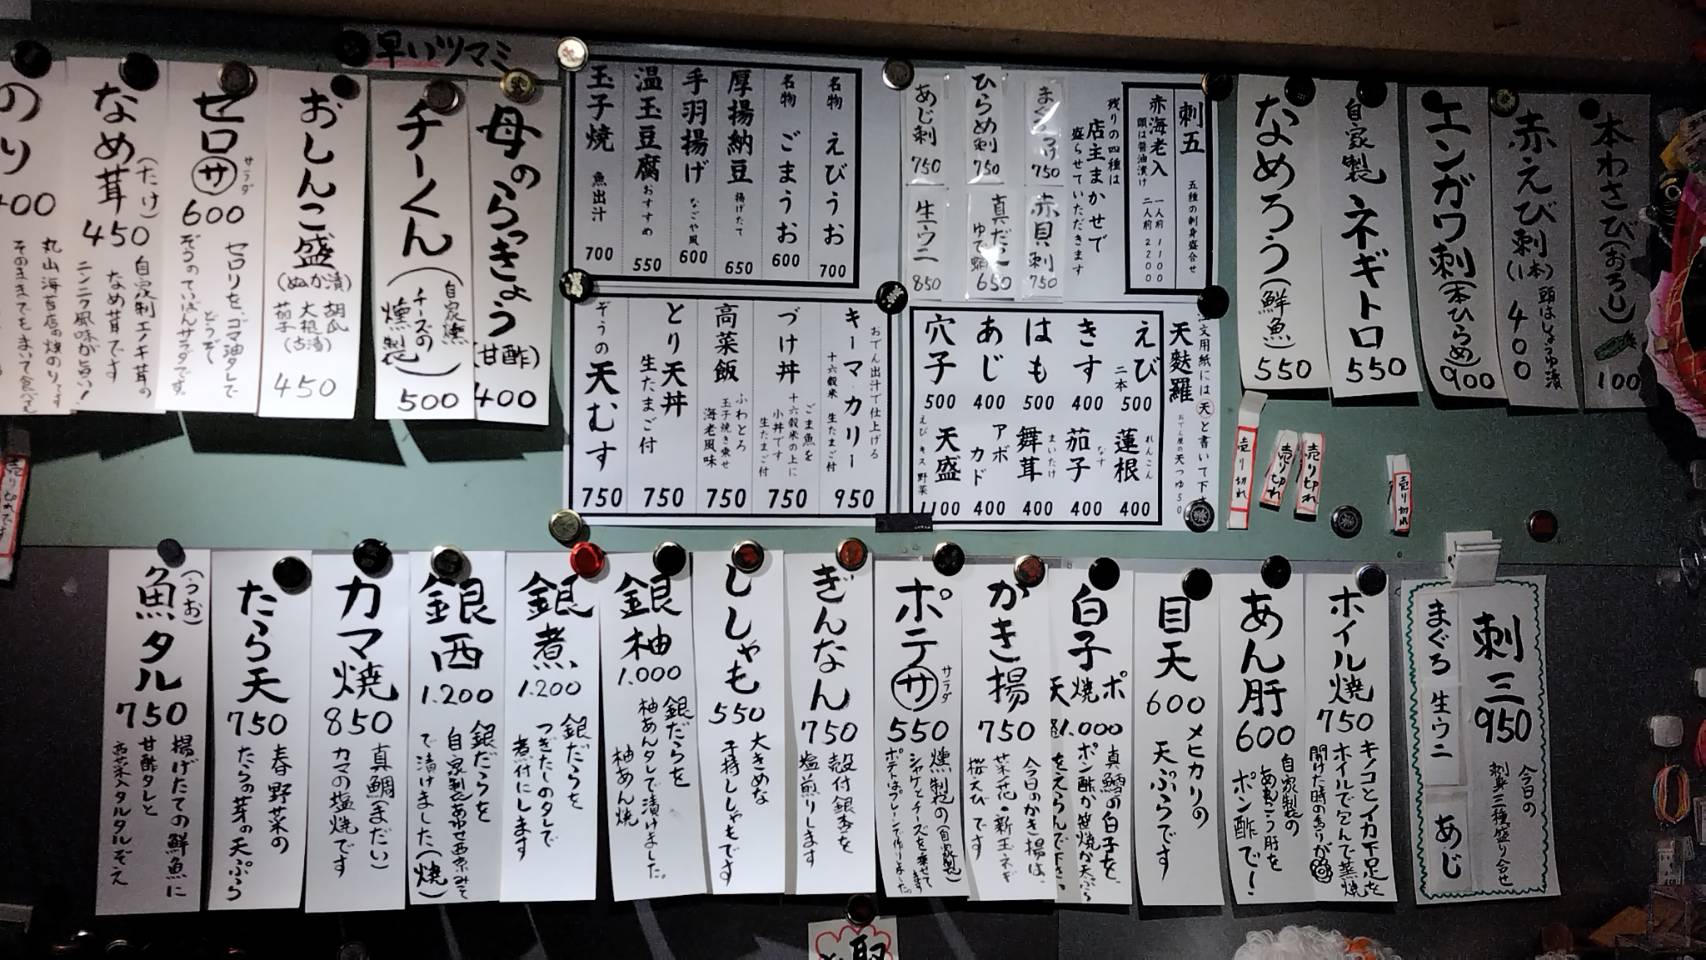 本わさび(おろし)
100
赤えび刺(1本)
400
頭はしょうゆ漬
エンガワ刺(本ひらめ)
900
自家製
ネギトロ
550
なめろう(鮮魚)
550
刺五
五種の刺身盛合せ
赤海老入
頭は醤油漬け
一人前 1100
二人前 2200
残りの四種は
店主まかせで
盛らせていただきます
750
赤貝刺
750
ひらめ刺
750
真だこ
ゆで蛸
650
あじ刺
750
生ウニ
850
名物 えびうお
700
名物 ごまうお
600
厚揚納豆
揚げたて
650
手羽揚げ
なごや風
600
温玉豆腐
おすすめ
550
玉子焼
魚出汁
700
おでん出汁で仕上げる
キーマカリー
十六穀米 生たまご付
950
づけ丼
ごま魚を
十六穀米の上に
小丼です
生たまご付
750
高菜飯
ふわとろ
玉子焼き乗せ
海老風味
750
とり天丼
生たまご付
750
ぞうの天むす
750
文用紙には㊝と書いて下
天麩羅
おでん屋の天つゆ50
えび
二本
500
きす
400
はも
500
あじ
400
穴子
500
蓮根
れんこん
400
茄子
なす
400
舞茸
まいたけ
400
アボカド
400
天盛
えび キス 野菜
1100
早いツマミ
母のらっきょう
(甘酢)
400
チーくん
自家燻
(チーズの燻製)
500
おしんこ盛
(ぬか漬)
胡瓜
大根
茄子(古漬)
450
セロサ
サラダ
600
セロリを、ゴマ油タレで
どうぞ
ぞうのていばんサラダです。
なめ茸
(たけ)
450
自家製エノキ茸の
なめ茸です
ニンニク風味が旨い!
のり
400
丸山海苔店の焼のりです
そのままでもまいて食べても
売り切れです
売り切れ
売り切れ
売り切れ
売り切れ
刺三
950
今日の
刺身三種盛り合せ
まぐろ
生ウニ
あじ
ホイル焼
750
キノコとイカ下足を
ホイルで包んで蒸焼
開けた時の香りが
あん肝
600
自家製の
あんこう肝を
ポン酢で!
目天
600
メヒカリの
天ぷらです
白子
ポ
焼
天
1.000
真鱈の白子を、
ポン酢か笹焼か天ぷら
をえらんで下さい
かき揚
750
今日のかき揚は、
菜の花・新玉ネギ
桜えび です
ポテサ
サラダ
550
燻製の(自家製)
シャケとチーズを乗せて
ポテトはプレーンで作りました。
ぎんなん
750
殻付銀杏を
塩煎りします
ししゃも
550
大きめな
子持ししゃもです
銀柚
1.000
銀だらを
柚あんタレで漬けました。
柚あん焼
銀煮
1.200
銀だらを
つぎたしのタレで
煮付にします
銀西
1.200
銀だらを
自家製あわせ西京みそ
で漬けました(焼)
カマ焼
850
真鯛(まだい)
カマの塩焼です
たら天
750
春野菜の
たらの芽の天ぷら
魚タル
(うお)
750
揚げたての鮮魚に
甘酢タレと
野菜入タルタルぞえ